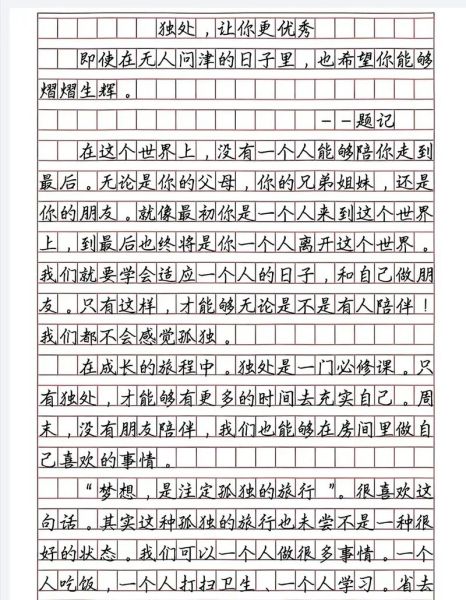 独处，让你更优秀
即使在无人问津的日子里，也希望你能够
熠熠生辉。
－－题记
在这个世界上，没有一个人能够陪你走到
最后。无论是你的父母，你的兄弟姐妹，还是
你的朋友。就像最初你是一个人来到这个世界
上，到最后也终将是你一个人离开这个世界。
我们就要学会适应一个人的日子，和自己做朋
友。只有这样，才能够无论是不是有人陪伴！
我们都不会感觉孤独。
在成长的旅程中。独处是一门必修课。只
有独处，才能够有更多的时间去充实自己。周
末，没有朋友陪伴，我们也能够在房间里做自
己喜欢的事情。
“梦想，是注定孤独的旅行”。很喜欢这
句话。其实这种孤独的旅行也未尝不是一种很
好的状态。我们可以一个人做很多事情。一个
人吃饭，一个人打扫卫生、一个人学习。省去